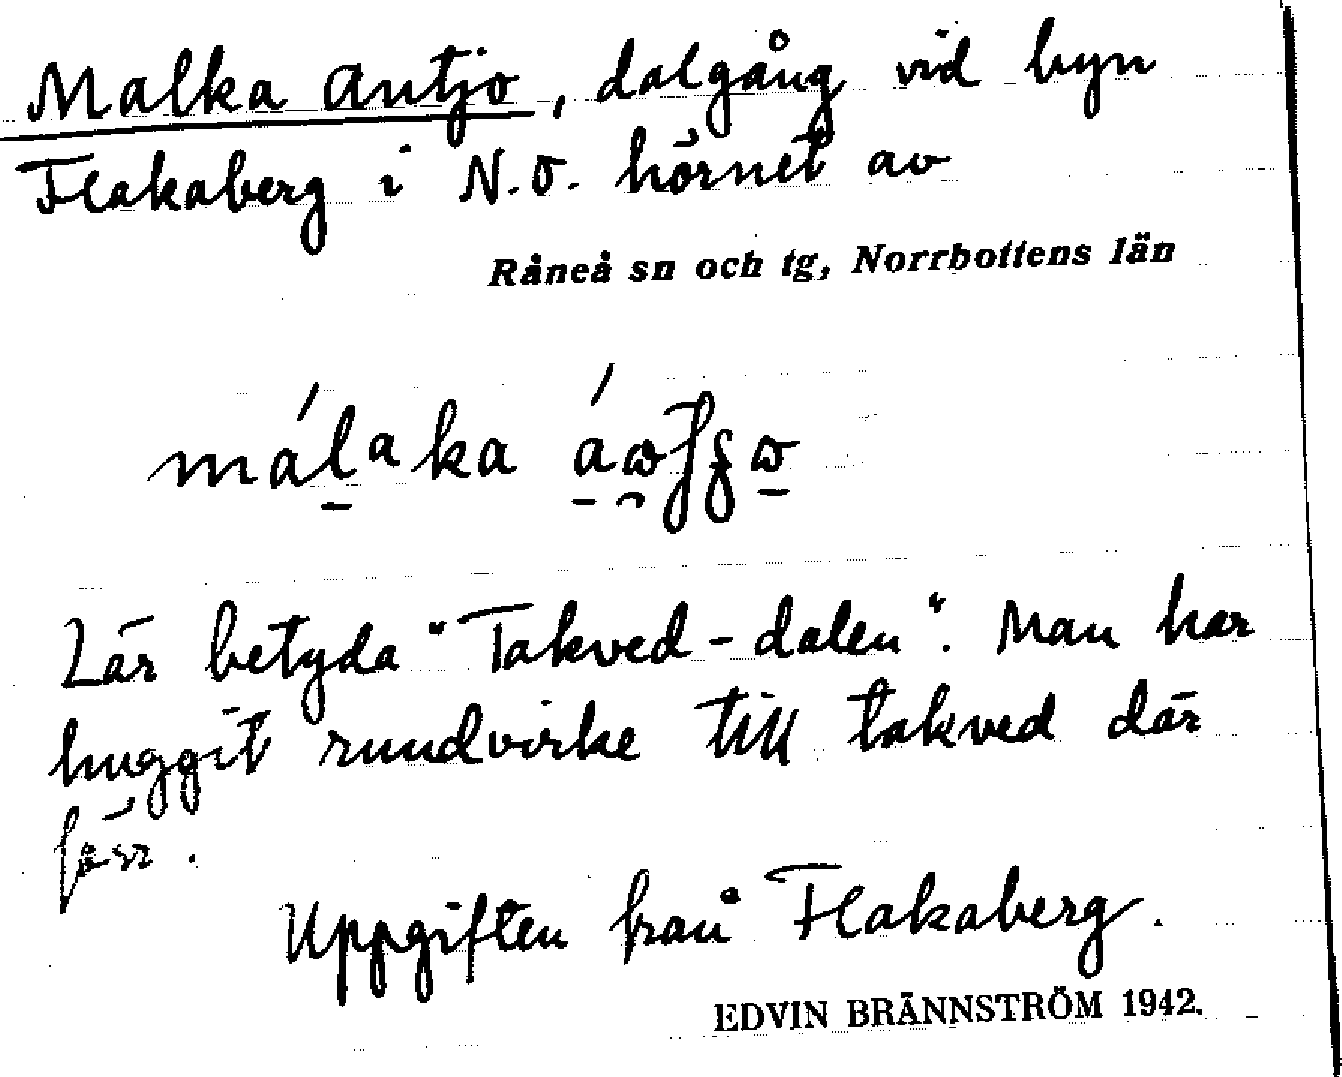 Malka Autjo, dalgång vid byn
Flakaberg i N.O. hörnet av
Råneå sn och tg, Norrbottens län
málaka
Lär betyda "Takved-dalen". Man har
huggit rundvirke till takved där
förr.
Uppgiften från Flakaberg.
EDVIN BRÄNNSTRÖM 1942.